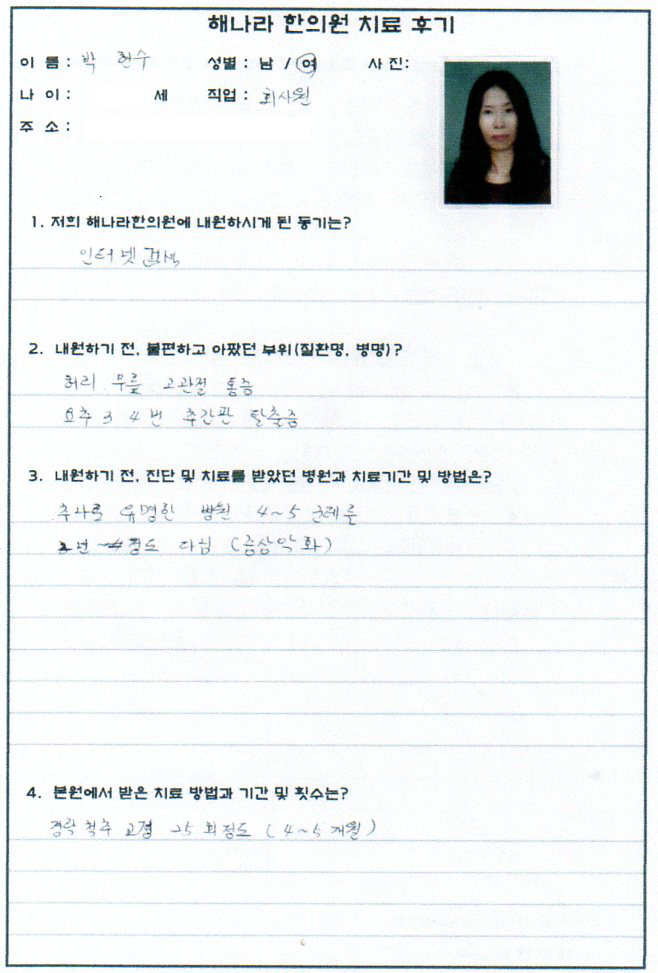 해나라 한의원 치료 후기
이 름 : 박 현수 성별 : 남 / 여 사 진:
나 이 : 세 직업 : 회사원
주 소 :
1. 저희 해나라한의원에 내원하시게 된 동기는?
인터넷 검색
2. 내원하기 전, 불편하고 아팠던 부위(질환명, 병명)?
허리 무릎 고관절 통증
요추 3 4 번 추간판 탈출증
3. 내원하기 전, 진단 및 치료를 받았던 병원과 치료기간 및 방법은?
주사로 유명한 병원 4~5 군데를
2년 정도 다님 (증상악화)
4. 본원에서 받은 치료 방법과 기간 및 횟수는?
경락 척추 교정 25 회정도 (4~5 개월)